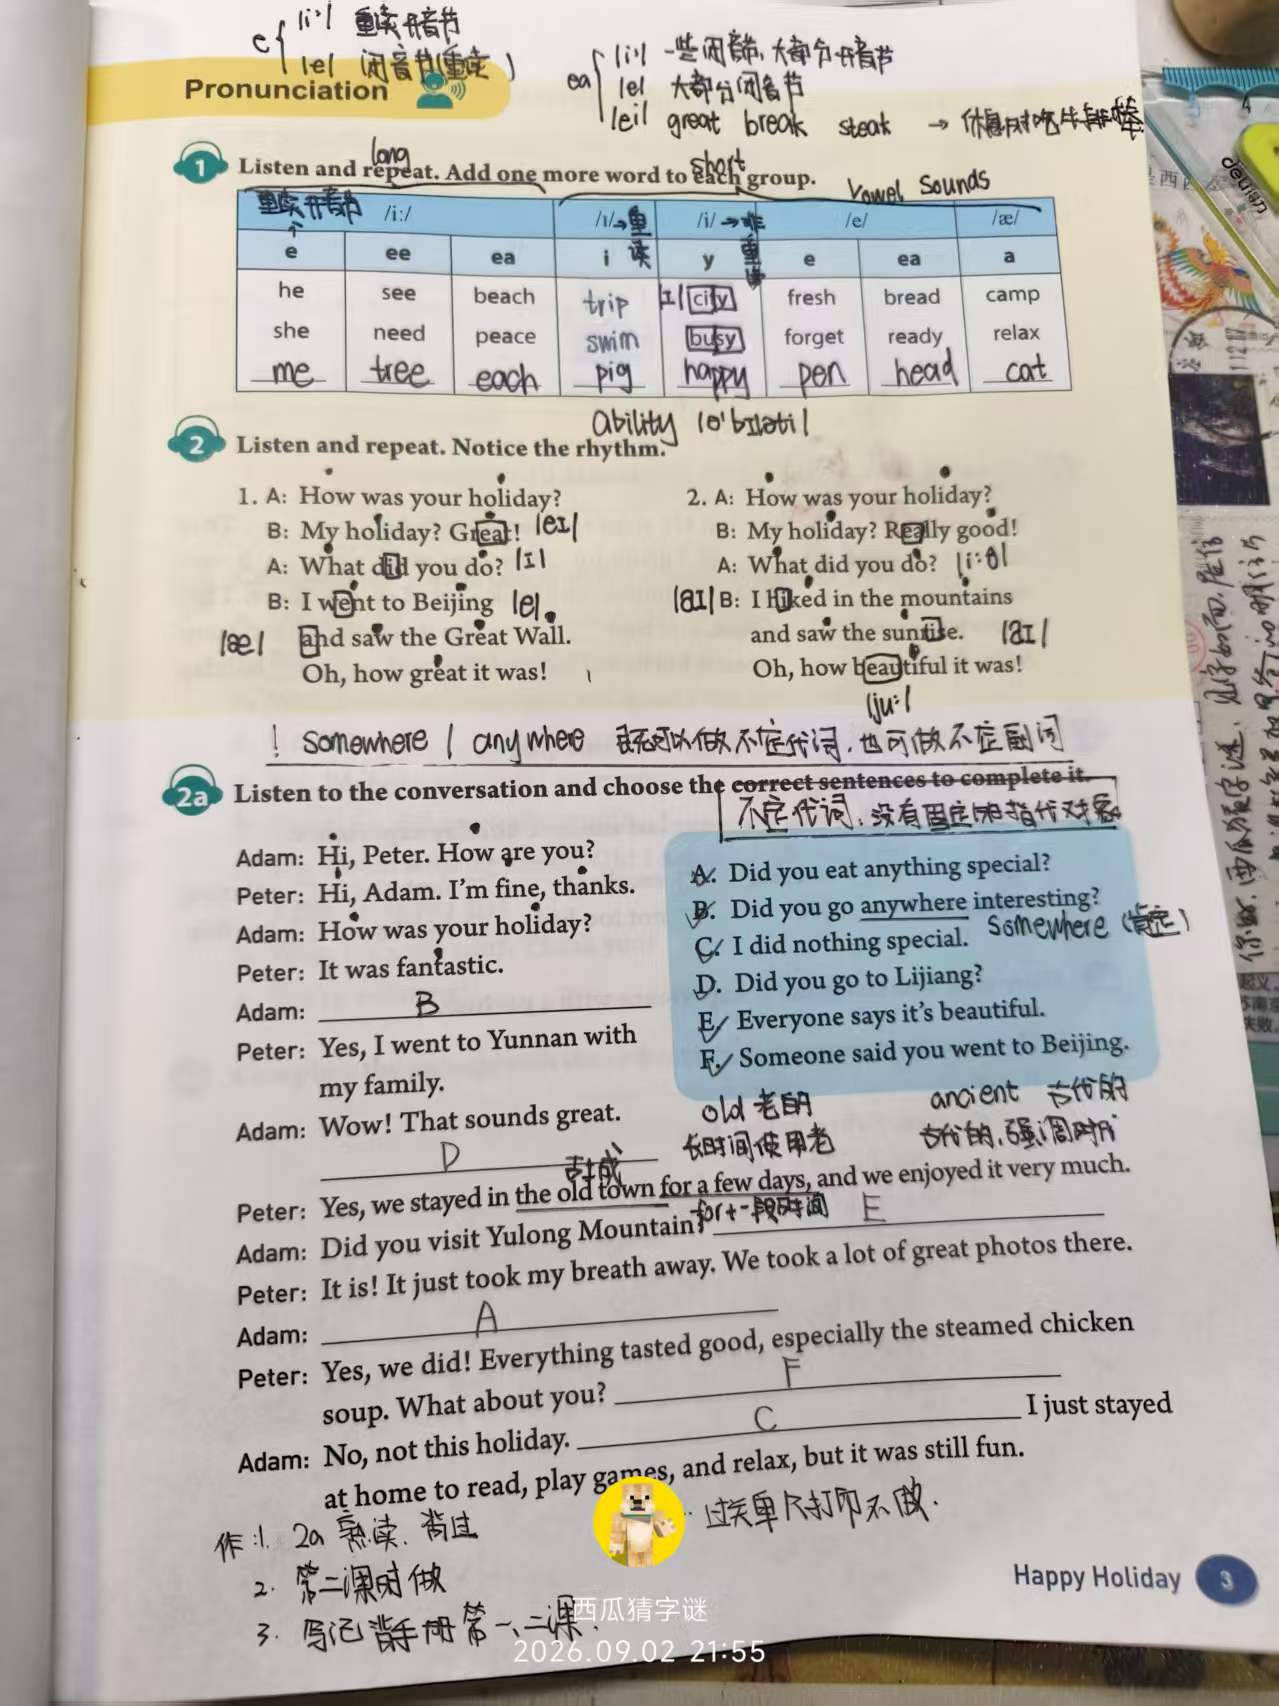 e { /i:/ 重读开音节
/e/ 闭音节(重读)
ea { /i:/ 一些闭音节、大部分开音节
/e/ 大部分闭音节
/ei/ great break steak → 休息时吃牛排棒
Pronunciation
1 Listen and repeat. Add one more word to each group.
long short Vowel Sounds
重读开音节 /i:/ /ɪ/→重读 /i/→非重读 /e/ /æ/
e ee ea i y e ea a
he see beach trip /ɪ/ city fresh bread camp
she need peace swim busy forget ready relax
me tree each pig happy pen head cat
ability /ə'bɪləti/
2 Listen and repeat. Notice the rhythm.
1. A: How was your holiday?
B: My holiday? Great! /eɪ/
A: What did you do? /ɪ/
B: I went to Beijing /e/
/æ/ and saw the Great Wall.
Oh, how great it was!
2. A: How was your holiday?
B: My holiday? Really good!
A: What did you do? /i:ə/
/aɪ/ B: I hiked in the mountains
and saw the sunrise. /aɪ/
Oh, how beautiful it was!
/ju:/
! somewhere / anywhere 既可以做不定代词，也可做不定副词
2a Listen to the conversation and choose the correct sentences to complete it.
不定代词：没有固定的指代对象
Adam: Hi, Peter. How are you?
Peter: Hi, Adam. I'm fine, thanks.
Adam: How was your holiday?
Peter: It was fantastic.
Adam: B
Peter: Yes, I went to Yunnan with
my family.
Adam: Wow! That sounds great.
D
A. Did you eat anything special?
B. Did you go anywhere interesting?
somewhere (肯定)
C. I did nothing special.
D. Did you go to Lijiang?
E. Everyone says it's beautiful.
F. Someone said you went to Beijing.
old 老的
长时间使用老
ancient 古代的
古代的，强调时代
古城
Peter: Yes, we stayed in the old town for a few days, and we enjoyed it very much.
for+一段时间
Adam: Did you visit Yulong Mountain? E
Peter: It is! It just took my breath away. We took a lot of great photos there.
Adam: A
Peter: Yes, we did! Everything tasted good, especially the steamed chicken
soup. What about you? F
Adam: No, not this holiday. C I just stayed
at home to read, play games, and relax, but it was still fun.
作:1. 2a 熟读、背过
过关单只打印不做.
2. 第二课时做
3. 写记背手册第一、二课.
Happy Holiday 3
西瓜猜字谜
2026.09.02 21:55
deli